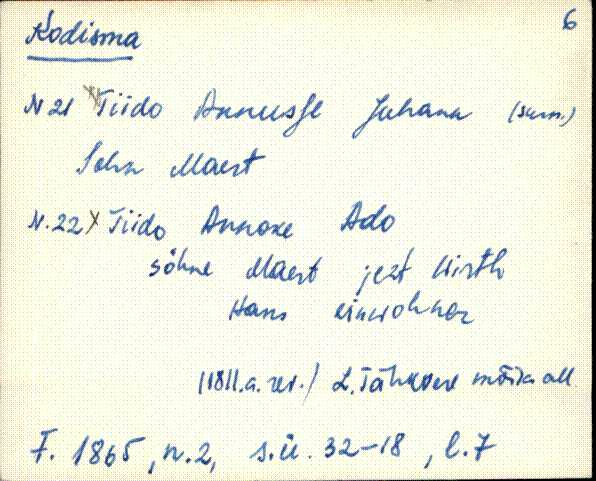 6
Kodisma
N 21 Tiido Annusse Juhana (surn.)
Sohn Maert
N. 22 x Tiido Annoxe Ado
söhne Maert jezt Wirth
Hans einwohner
(1811.a. rev.) L. Tähkvere mõisa all
F. 1865, n. 2, s.ü. 32-18, l. 7